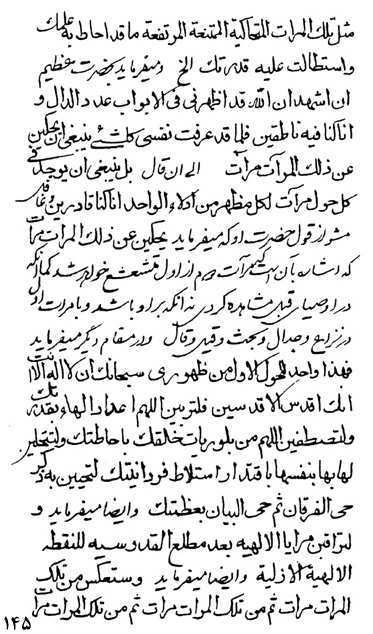 مثل تلك المرات المتحاكية الممتنعة المرتفعة ما قد احاط به علمك
واستطالت عليه قدرتك الخ ومیفرماید بحضرت عظیم
ان اشهد ان الله قد اظهرنی فی الابواب عدد الدال و
انا کنا فیه ناطقین فلما قد عرفت نفسی کلشئ ینبغی ان یحکین
عن ذلك المرآت مرآت الی ان قال بل ینبغی ان یوجد فی
کل حول مرآت لکل مظهر من ادلاء الواحد انا کنا قادرین و غافل
مشو از قول حضرت او که میفرماید یحکین عن ذلك المرات مرات
که اشاره بآن است که مرآت دوم از اول متشعشع خواهد شد کما آنکه
در اوصیای قبل مشاهده کردی نه آنکه برا و باشد و با مرات اول
در نزاع وجدال وبحث وقیل وقال ودر مقام دیگر میفرماید
فهذا واحد للحول الاول من ظهوری سبحانك ان لا اله الا انت
انك اقدس الاقدسین فلتربین اللهم اعداد الهاء بقدرتك
ولتصطفین اللهم من بلوریات خلقك باحاطتك ولتتجلین
لها بها بنفسها باقتدار استلاط فردانیتك لتحیین به ذکر
حی الفرقان ثم حی البیان بعظمتك وایضا میفرماید و
لتراقبن مرایا الالهیه بعد مطلع القدوسیه للنقطه
الالهیة الازلیة وایضا میفرماید وستعکس من تلك
المرات مرات ثم من تلك المرات مرات ثم من تلك المرات مرات
۱۴۵